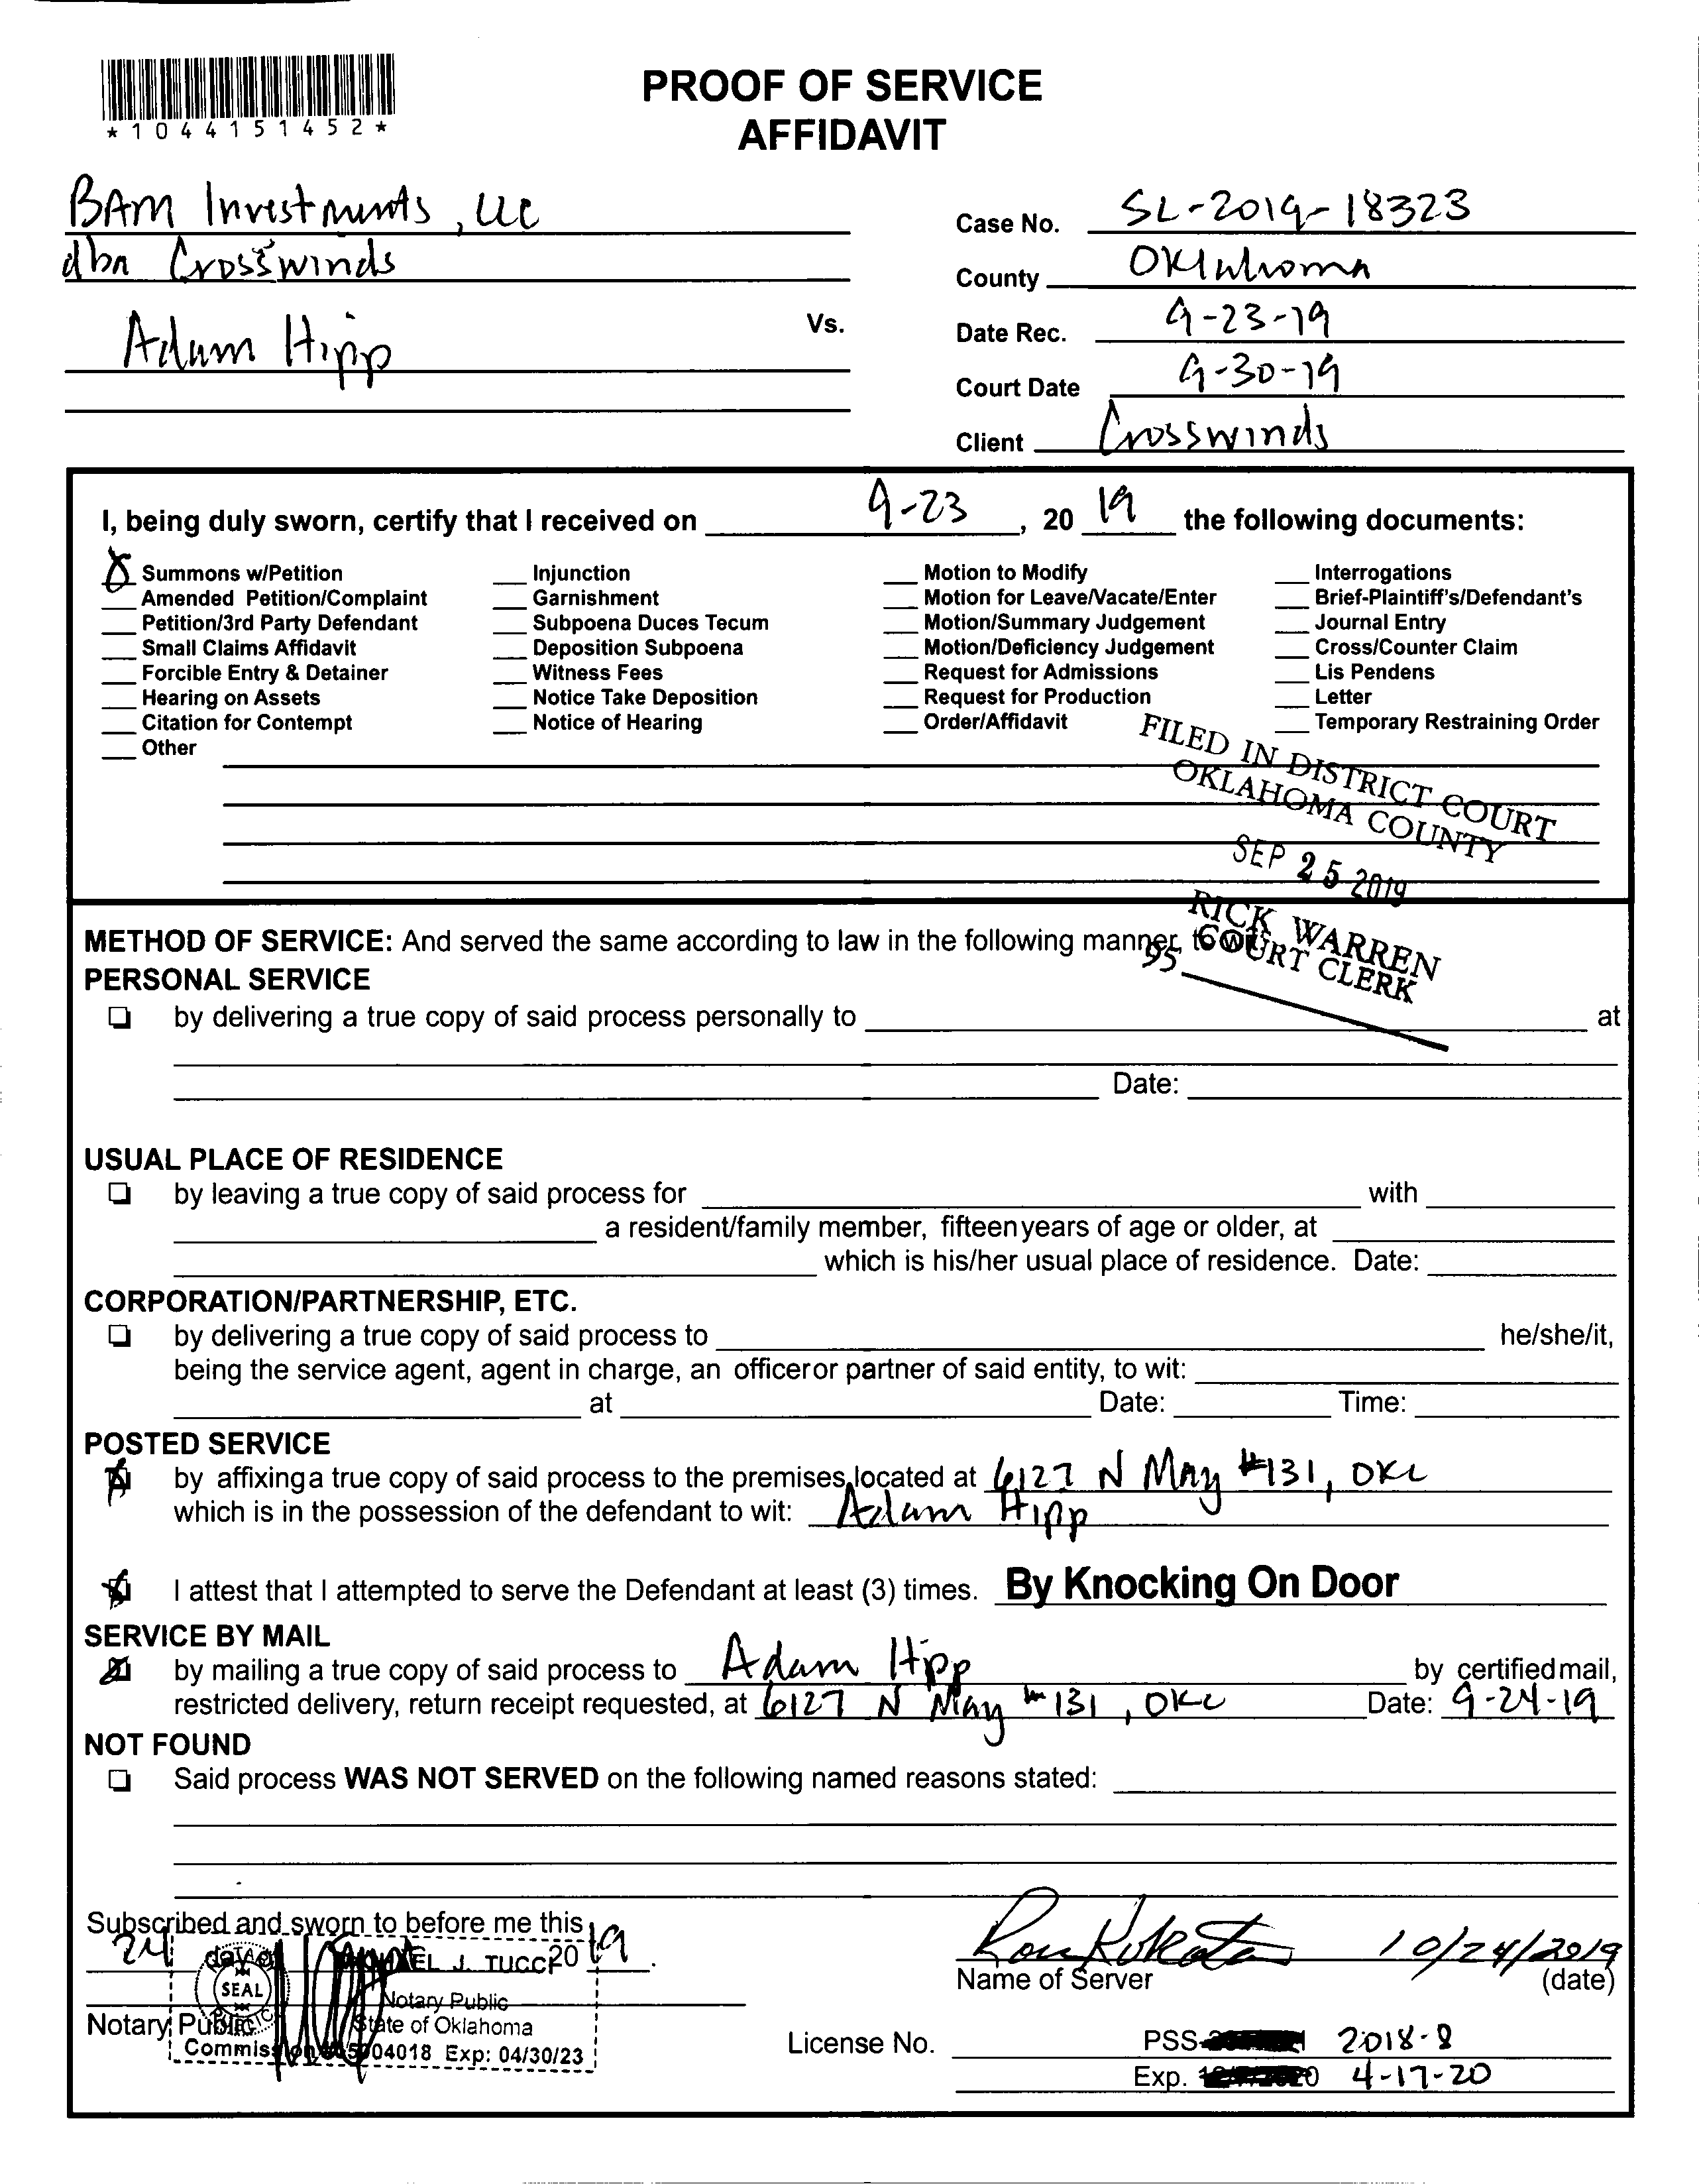 *1044151452*
PROOF OF SERVICE
AFFIDAVIT
BAM Investments, LLC
dba Crosswinds
Vs.
Adam Hipp
Case No. SL-2019-18323
County Oklahoma
Date Rec. 9-23-19
Court Date 9-30-19
Client Crosswinds
I, being duly sworn, certify that I received on 9-23, 20 19 the following documents:
X Summons w/Petition
Amended Petition/Complaint
Petition/3rd Party Defendant
Small Claims Affidavit
Forcible Entry & Detainer
Hearing on Assets
Citation for Contempt
Other
Injunction
Garnishment
Subpoena Duces Tecum
Deposition Subpoena
Witness Fees
Notice Take Deposition
Notice of Hearing
Motion to Modify
Motion for Leave/Vacate/Enter
Motion/Summary Judgement
Motion/Deficiency Judgement
Request for Admissions
Request for Production
Order/Affidavit
Interrogations
Brief-Plaintiff's/Defendant's
Journal Entry
Cross/Counter Claim
Lis Pendens
Letter
Temporary Restraining Order
FILED IN DISTRICT COURT
OKLAHOMA COUNTY
SEP 25 2019
RICK WARREN
COURT CLERK
95
METHOD OF SERVICE: And served the same according to law in the following manner, to wit:
PERSONAL SERVICE
by delivering a true copy of said process personally to at
Date:
USUAL PLACE OF RESIDENCE
by leaving a true copy of said process for with
a resident/family member, fifteen years of age or older, at
which is his/her usual place of residence. Date:
CORPORATION/PARTNERSHIP, ETC.
by delivering a true copy of said process to he/she/it,
being the service agent, agent in charge, an officer or partner of said entity, to wit:
at Date: Time:
POSTED SERVICE
X by affixing a true copy of said process to the premises, located at 6127 N May #131, OKC
which is in the possession of the defendant to wit: Adam Hipp
X I attest that I attempted to serve the Defendant at least (3) times. By Knocking On Door
SERVICE BY MAIL
X by mailing a true copy of said process to Adam Hipp by certified mail,
restricted delivery, return receipt requested, at 6127 N May #131, OKC Date: 9-24-19
NOT FOUND
Said process WAS NOT SERVED on the following named reasons stated:
Subscribed and sworn to before me this
24 day of 20 19.
J. TUCCI
SEAL
Notary Public
State of Oklahoma
Exp: 04/30/23
Notary Public
10/24/2019
Name of Server (date)
License No. PSS- 2018-8
Exp. 4-17-20